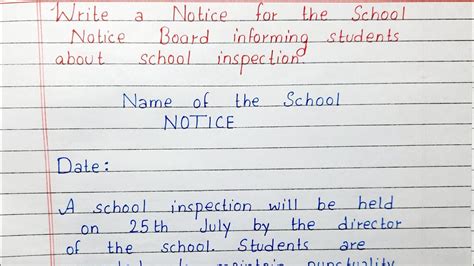 Write a Notice for the School
Notice Board informing students
about school inspection.
Name of the School
NOTICE
Date:
A school inspection will be held
on 25th July by the director
of the school. Students are
maintain punctuality